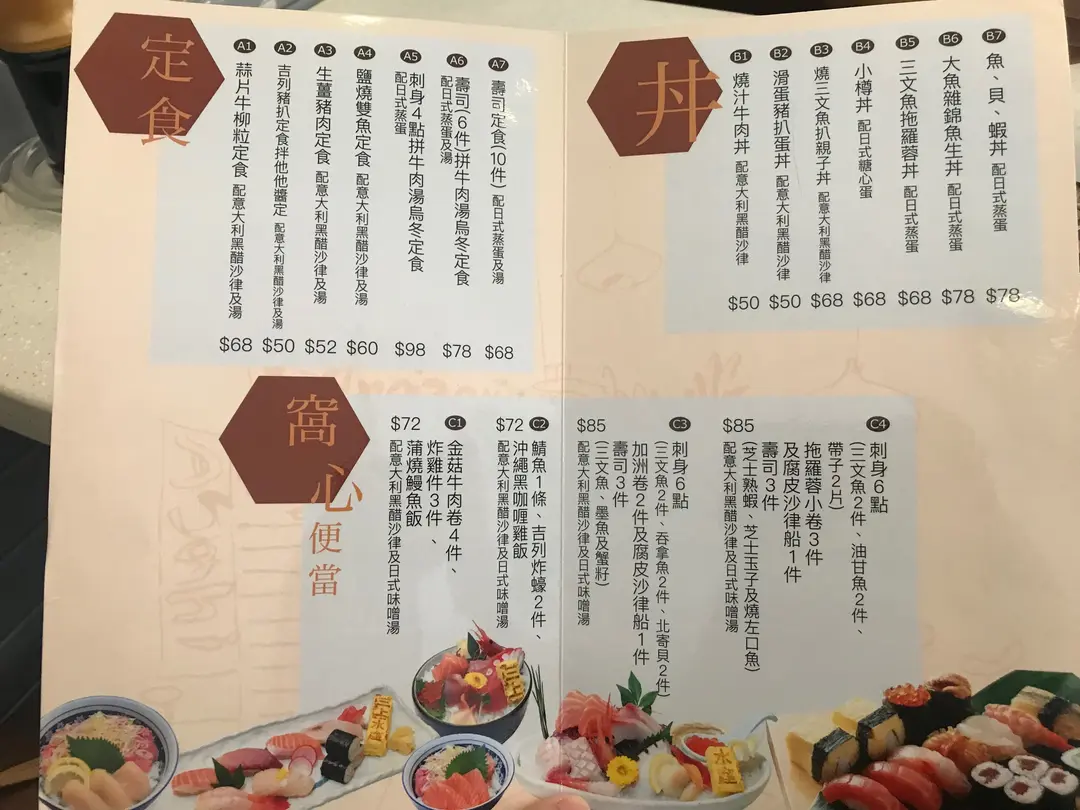 定食
A1 蒜片牛柳粒定食 配意大利黑醋沙律及湯 $68
A2 吉列豬扒定食拌他他醬定 配意大利黑醋沙律及湯 $50
A3 生薑豬肉定食 配意大利黑醋沙律及湯 $52
A4 鹽燒雙魚定食 配意大利黑醋沙律及湯 $60
A5 刺身4點拼牛肉湯烏冬定食
配日式蒸蛋 $98
A6 壽司(6件)拼牛肉湯烏冬定食
配日式蒸蛋及湯 $78
A7 壽司定食(10件) 配日式蒸蛋及湯 $68
丼
B1 燒汁牛肉丼 配意大利黑醋沙律 $50
B2 滑蛋豬扒蛋丼 配意大利黑醋沙律 $50
B3 燒三文魚扒親子丼 配意大利黑醋沙律 $68
B4 小樽丼 配日式糖心蛋 $68
B5 三文魚拖羅蓉丼 配日式蒸蛋 $68
B6 大魚雜錦魚生丼 配日式蒸蛋 $78
B7 魚、貝、蝦丼 配日式蒸蛋 $78
窩心便當
C1 金菇牛肉卷4件、
炸雞件3件、
蒲燒鰻魚飯
配意大利黑醋沙律及日式味噌湯
$72
C2 鯖魚1條、吉列炸蠔2件、
沖繩黑咖喱雞飯
配意大利黑醋沙律及日式味噌湯
$72
C3 刺身6點
(三文魚2件、吞拿魚2件、北寄貝2件)
加洲卷2件及腐皮沙律船1件
壽司3件
(三文魚、墨魚及蟹籽)
配意大利黑醋沙律及日式味噌湯
$85
C4 刺身6點
(三文魚2件、油甘魚2件、
帶子2片)
拖羅蓉小卷3件
及腐皮沙律船1件
壽司3件
(芝士熟蝦、芝士玉子及燒左口魚)
配意大利黑醋沙律及日式味噌湯
$85